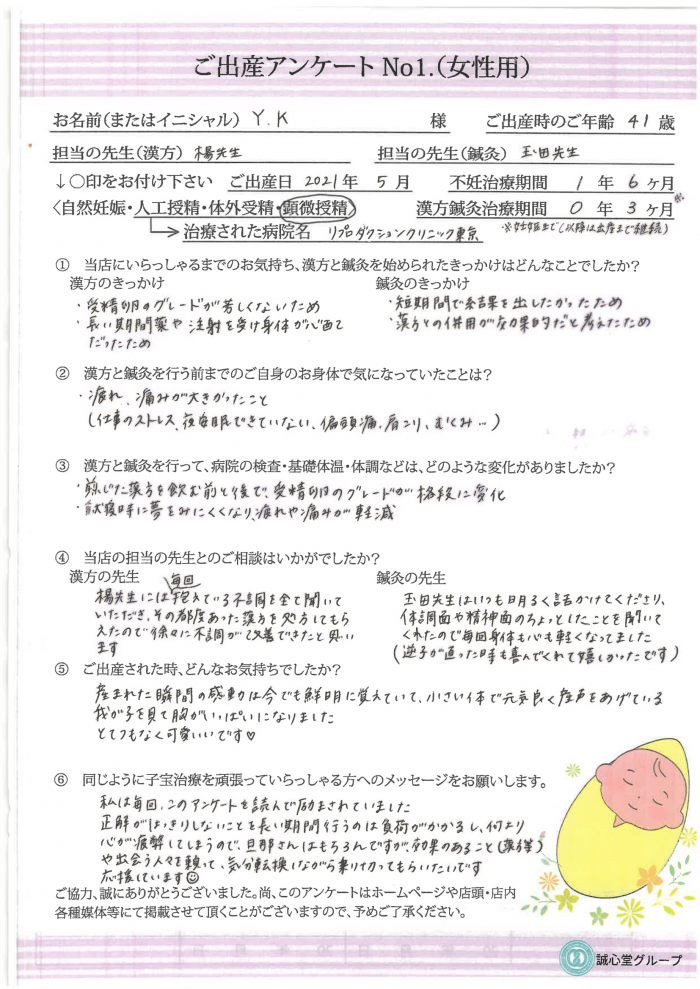 ご出産アンケート No1.（女性用）
お名前（またはイニシャル） Y.K 様 ご出産時のご年齢 41 歳
担当の先生（漢方） 楊先生 担当の先生（鍼灸） 玉田先生
↓○印をお付け下さい ご出産日 2021年 5 月 不妊治療期間 1 年 6 ヶ月
〈自然妊娠・人工授精・体外受精・顕微授精〉 漢方鍼灸治療期間 0 年 3 ヶ月※
→治療された病院名 リプロダクションクリニック東京 ※妊娠まで（以降は出産まで継続）
① 当店にいらっしゃるまでのお気持ち、漢方と鍼灸を始められたきっかけはどんなことでしたか？
漢方のきっかけ 鍼灸のきっかけ
・受精卵のグレードが芳しくないため ・短期間で結果を出したかったため
・長い期間薬や注射を受け身体が心配 ・漢方との併用が効果的だと考えたため
だったため
② 漢方と鍼灸を行う前までのご自身のお身体で気になっていたことは？
・疲れ、痛みが大きかったこと
（仕事のストレス、夜安眠できていない、偏頭痛、肩こり、むくみ…）
③ 漢方と鍼灸を行って、病院の検査・基礎体温・体調などは、どのような変化がありましたか？
・煎じた漢方を飲む前と後で、受精卵のグレードが格段に変化
・就寝時に夢をみにくくなり、疲れや痛みが軽減
④ 当店の担当の先生とのご相談はいかがでしたか？
漢方の先生 鍼灸の先生
楊先生には毎回抱えている不調を全て聞いて
いただき、その都度あった漢方を処方してもら
えたので徐々に不調が改善できたと思い
ます
玉田先生はいつも明るく話かけてくださり、
体調面や精神面のちょっとしたことを聞いて
くれたので毎回身体も心も軽くなってました
（逆子が直った時も喜んでくれて嬉しかったです）
⑤ ご出産された時、どんなお気持ちでしたか？
産まれた瞬間の感動は今でも鮮明に覚えていて、小さい体で元気良く産声をあげている
我が子を見て胸がいっぱいになりました
とてつもなく可愛いいです♡
⑥ 同じように子宝治療を頑張っていらっしゃる方へのメッセージをお願いします。
私は毎回、このアンケートを読んで励まされていました
正解がはっきりしないことを長い期間行うのは負荷がかかるし、何より
心が疲弊してしまうので、旦那さんはもちろんですが、効果のあること（漢方等）
や出会う人々を頼って、気分転換しながら乗り切ってもらいたいです
応援しています☺
ご協力、誠にありがとうございました。尚、このアンケートはホームページや店頭・店内
各種媒体等にて掲載させて頂くことがございますので、予めご了承ください。
誠心堂グループ